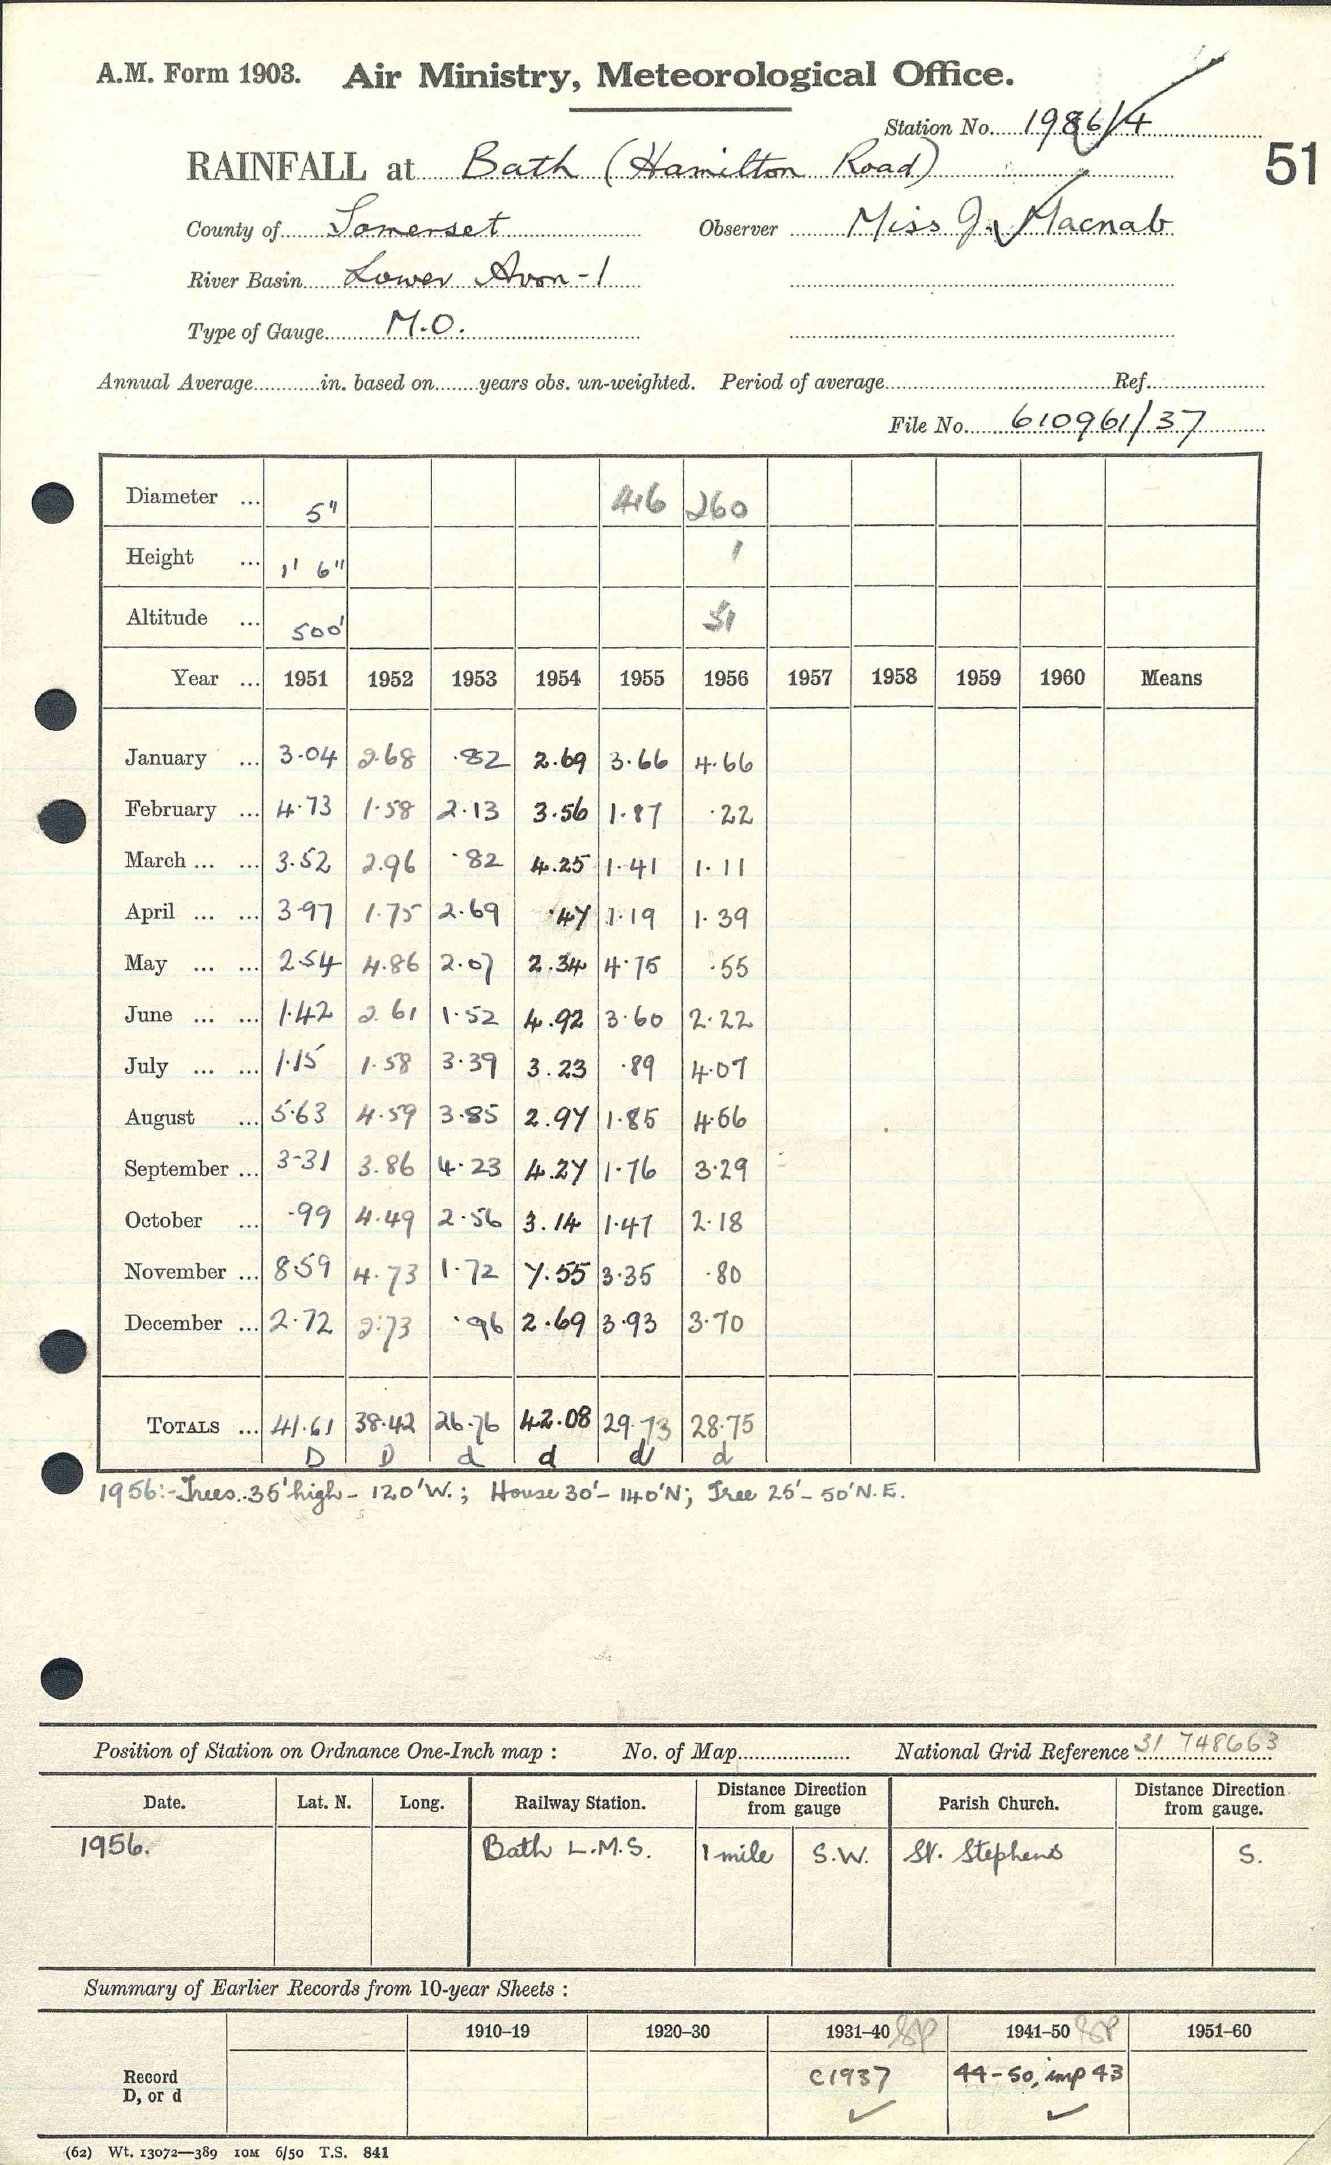 A.M. Form 1903. Air Ministry, Meteorological Office.
Station No. 1986/4
51
RAINFALL at Bath (Hamilton Road)
County of Somerset Observer Miss J. Macnab
River Basin Lower Avon-1
Type of Gauge M.O.
Annual Average in. based on years obs. un-weighted. Period of average Ref.
File No. 610961/37
Diameter ... 5" 416 260
Height ... 1' 6" 1
Altitude ... 500' 51
Year ... 1951 1952 1953 1954 1955 1956 1957 1958 1959 1960 Means
January ... 3.04 2.68 .82 2.69 3.66 4.66
February ... 4.73 1.58 2.13 3.56 1.87 .22
March ... ... 3.52 2.96 .82 4.25 1.41 1.11
April ... ... 3.97 1.75 2.69 .47 1.19 1.39
May ... ... 2.54 4.86 2.07 2.34 4.75 .55
June ... ... 1.42 2.61 1.52 4.92 3.60 2.22
July ... ... 1.15 1.58 3.39 3.23 .89 4.07
August ... 5.63 4.59 3.85 2.97 1.85 4.56
September ... 3.31 3.86 4.23 4.27 1.76 3.29
October ... .99 4.49 2.56 3.14 1.47 2.18
November ... 8.59 4.73 1.72 7.55 3.35 .80
December ... 2.72 2.73 .96 2.69 3.93 3.70
TOTALS ... 41.61 38.42 26.76 42.08 29.73 28.75
D D d d d d
1956:- Trees 35' high - 120' W.; House 30' - 140' N; Tree 25' - 50' N.E.
Position of Station on Ordnance One-Inch map : No. of Map National Grid Reference 31 748663
Date. Lat. N. Long. Railway Station. Distance from gauge Direction Parish Church. Distance from gauge. Direction
1956. Bath L.M.S. 1 mile S.W. St. Stephens S.
Summary of Earlier Records from 10-year Sheets :
1910–19 1920–30 1931–40 1941–50 1951–60
Record D, or d C1937 44-50, imp 43
(62) Wt. 13072—389 10M 6/50 T.S. 841